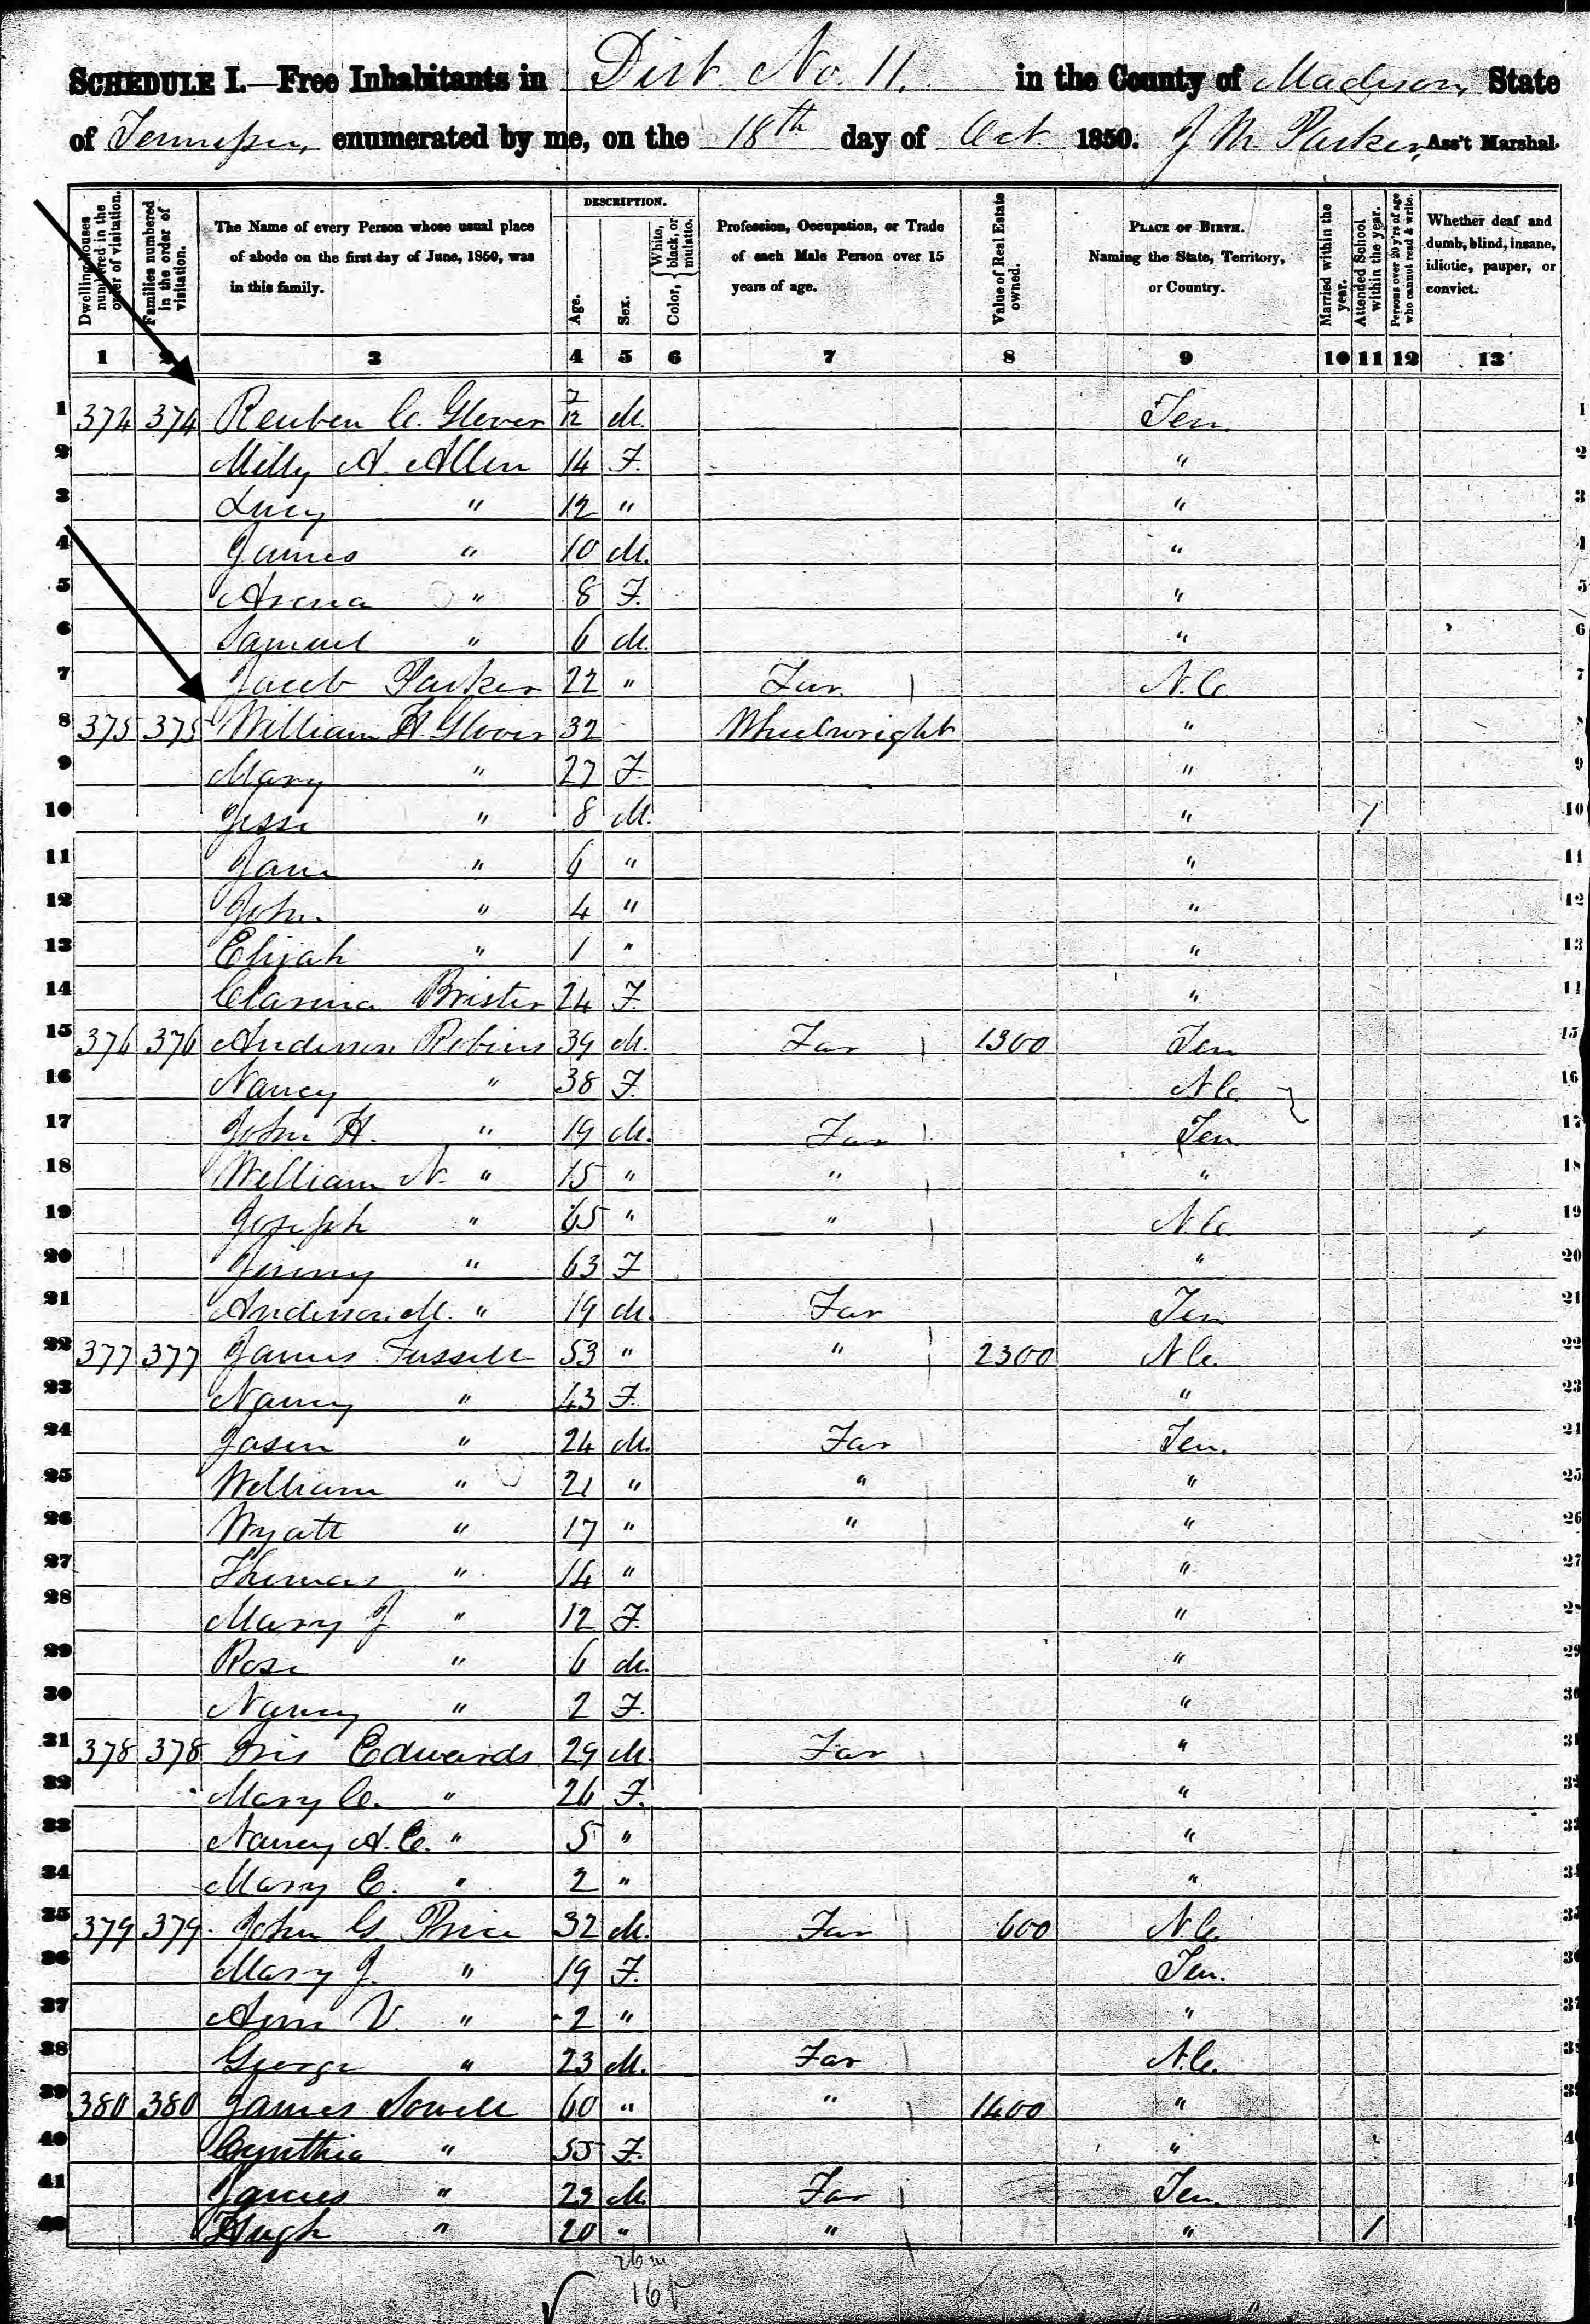 SCHEDULE I.—Free Inhabitants in Dist No. 11. in the County of Madison, State
of Tennessee, enumerated by me, on the 18th day of Oct. 1850. J M Parker, Ass't Marshal.
Dwelling-houses numbered in the order of visitation.
Families numbered in the order of visitation.
The Name of every Person whose usual place of abode on the first day of June, 1850, was in this family.
DESCRIPTION.
Age.
Sex.
Color, { White, black, or mulatto.
Profession, Occupation, or Trade of each Male Person over 15 years of age.
Value of Real Estate owned.
PLACE OF BIRTH. Naming the State, Territory, or Country.
Married within the year.
Attended School within the year.
Persons over 20 y'rs of age who cannot read & write.
Whether deaf and dumb, blind, insane, idiotic, pauper, or convict.
1 2 3 4 5 6 7 8 9 10 11 12 13
1 374 374 Reuben C. Glover 7/12 M. Ten. 1
2 Milly A. Allen 14 F. " 2
3 Lucy " 12 " " 3
4 James " 10 M. " 4
5 Arena " 8 F. " 5
6 Samuel " 6 M. " 6
7 Jacob Parker 22 " Far. N.C. 7
8 375 375 William H. Glover 32 Wheelwright " 8
9 Mary " 27 F. " 9
10 Jesse " 8 M. " 1 10
11 Jane " 6 " " 11
12 John " 4 " " 12
13 Elijah " 1 " " 13
14 Brister 24 F. " 14
15 376 376 Anderson Robins 39 M. Far 1300 Ten 15
16 Nancy " 38 F. N.C. 16
17 John H. " 19 M. Far Ten. 17
18 William N. " 15 " " " 18
19 Joseph " 65 " " N.C. 19
20 Jinny " 63 F " 20
21 Anderson M. " 19 M. Far Ten 21
22 377 377 James Fussell 53 " " 2300 N.C. 22
23 Nancy " 43 F. " 23
24 Jasen " 24 M. Far Ten. 24
25 William " 21 " " " 25
26 Wyatt " 17 " " " 26
27 Thomas " 14 " " 27
28 Mary J " 12 F. " 28
29 Rose " 6 M. " 29
30 Nancy " 2 F. " 30
31 378 378 Edwards 29 M. Far " 31
32 Mary C. " 26 F. "
33 Nancy A. C. " 5 " "
34 Mary E. " 2 " "
35 379 379 John G. Price 32 M. Far 600 N.C.
36 Mary J. " 19 F. Ten.
37 Ann V. " 2 " "
38 George " 23 M. Far N.C.
39 380 380 James Sowell 60 " " 1400 "
40 Cynthia " 55 F. "
41 James " 23 M. Far Ten.
Hugh " 20 " " " 1
26 m
16 f